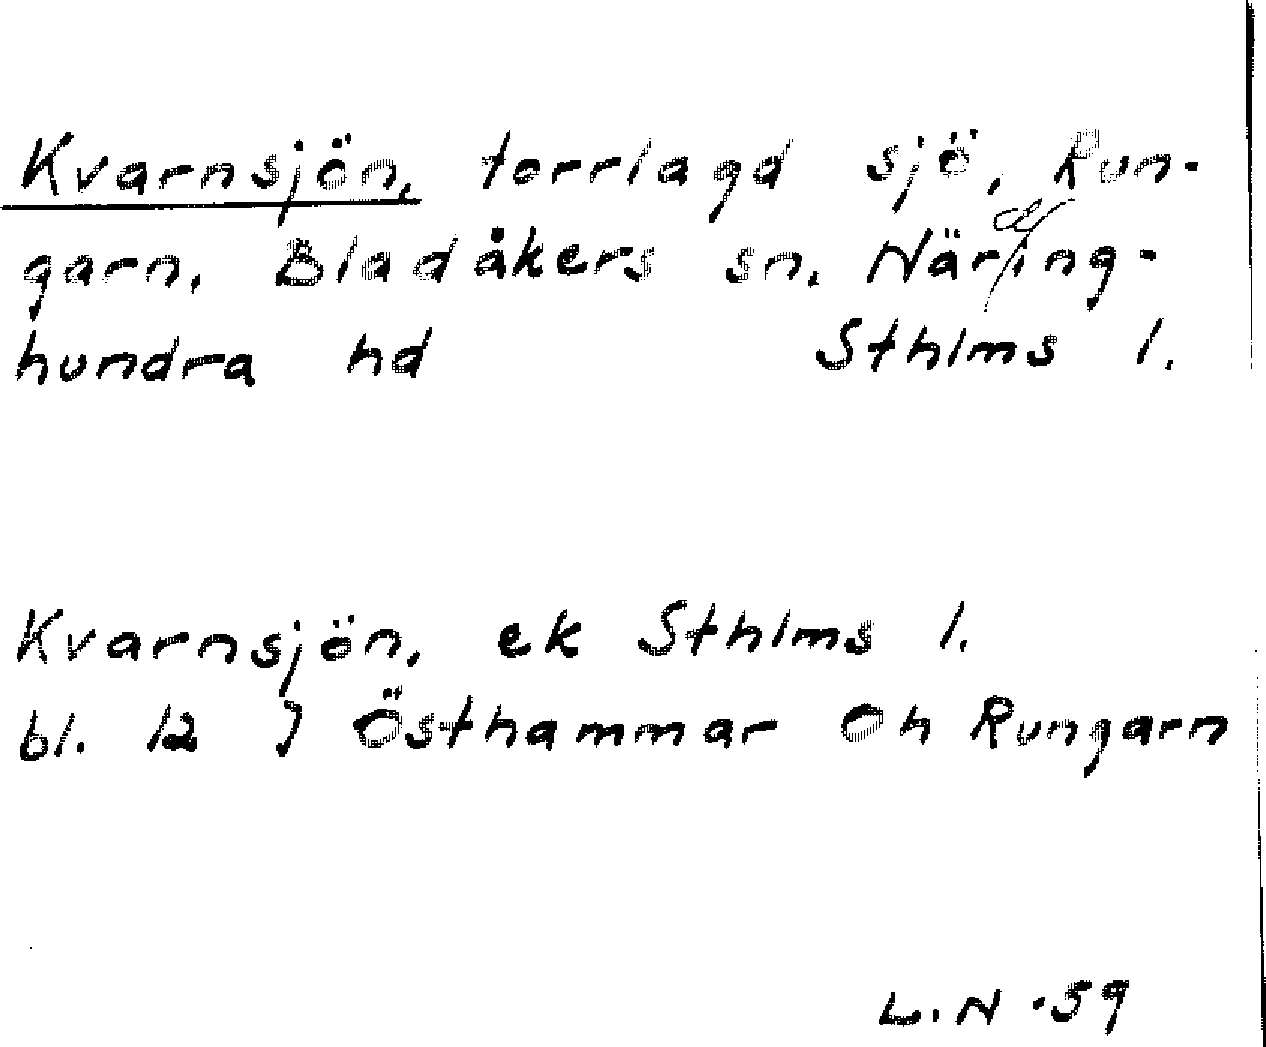 Kvarnsjön, torrlagd sjö, Run-
garn, Bladåkers sn. Närding-
hundra hd Sthlms l.
Kvarnsjön, ek Sthlms l.
bl. 12 J Östhammar Oh Rungarn
L.N -59